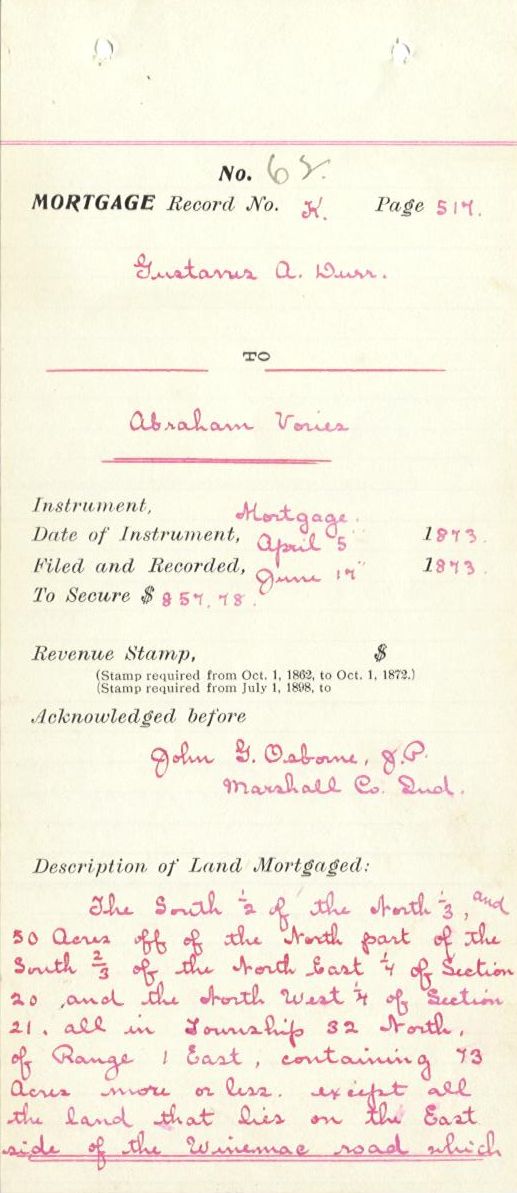 No. 62.
MORTGAGE Record No. K. Page 517.
Gustavus A. Durr.
TO
Abraham Vories
Instrument, Mortgage.
Date of Instrument, April 5" 1873.
Filed and Recorded, June 17" 1873.
To Secure $ 857.78.
Revenue Stamp, $
(Stamp required from Oct. 1, 1862, to Oct. 1, 1872.)
(Stamp required from July 1, 1898, to
Acknowledged before
John G. Osborne, J.P.
Marshall Co. Ind.
Description of Land Mortgaged:
The South 1/2 of the North 1/3, and
50 Acres off of the North part of the
South 2/3 of the North East 1/4 of Section
20, and the North West 1/4 of Section
21. all in Township 32 North,
of Range 1 East, containing 73
Acres more or less. except all
the land that lies on the East
side of the Winemac road which